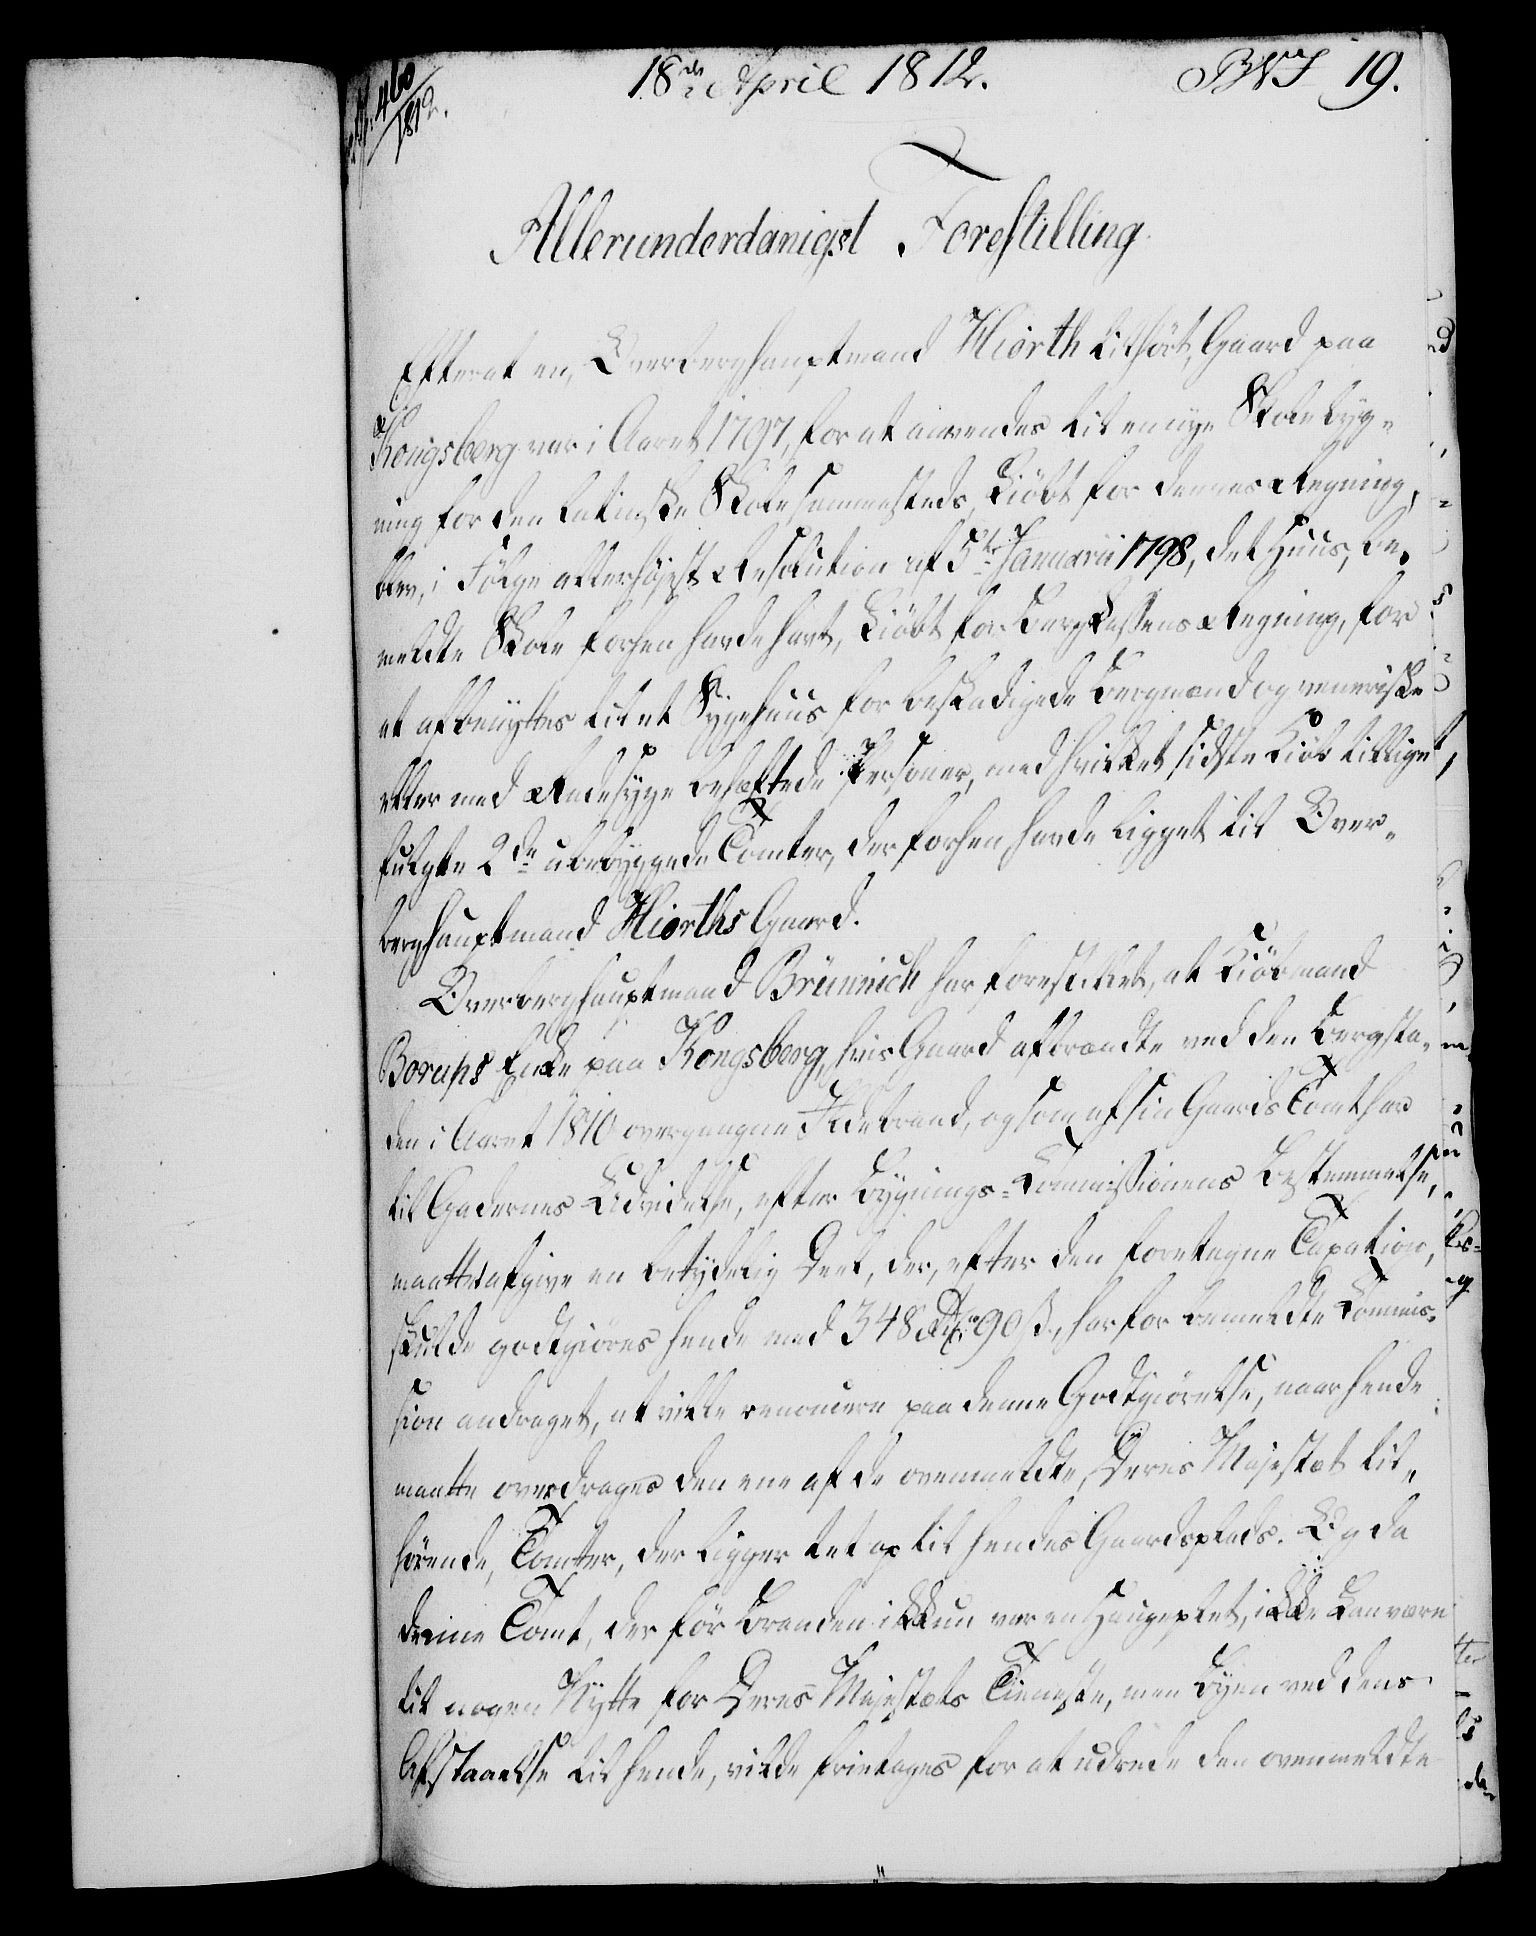 460
1812.
18de April 1812.
BVF 19.
Allerunderdanigst Forestilling
Efterat en, Overberghauptmand Hiorth tilhört, Gaard paa
Kongsberg var i Aaret 1797, for at anvendes til en nye Skole Byg-
ning for den latinske Skole sammesteds, kiöbt for dennes Regning,
blev, i Fölge allerhöyst Resolution af 5te Januarii 1798, det Huus, be-
meldte Skole forhen havde havt, kiöbt for Bergkassens Regning, for
at afbenyttes til et Sygehuus for beskadigede Bergmænd og veneriske
eller med Radesyge behæftede Personer, med hvilket sidste Kiöb tilligemed
fulgte 2de ubebyggede Tomter, der forhen havde ligget til Over-
berghauptmand Hiorths Gaard.
Overberghauptmand Brünnich har forestillet, at Kiöbmand
Borups Enke paa Kongsberg, hvis Gaard afbrændte ved den Bergsta-
den i Aaret 1810 overgangne Ildebrand, og som af sin Gaards Tomt har
til Gadernes Udvidelse, efter Bygnings-Commissionens Bestemmelse,
maattet afgive en betydelig Deel, der, efter den foretagne Taxation,
skulde godtgiöres hende med 348 Rdlr 90 ß, har for bemeldte Commis-
sion andraget, at ville renoncere paa denne Godtgiörelse, naar hende
maatte overdrages den ene af de ovenmeldte, Deres Majestæt til-
hörende, Tomter, der ligger tet op til hendes Gaardsplads. Og da
denne Tomt, der för Branden ikkun var en Haugeplet, ikke kan være
til nogen Nytte for Deres Majestæts Tieneste, men Byen ved dens
Afstaaelse til hende, vilde fritages for at udrede den ovenmeldte